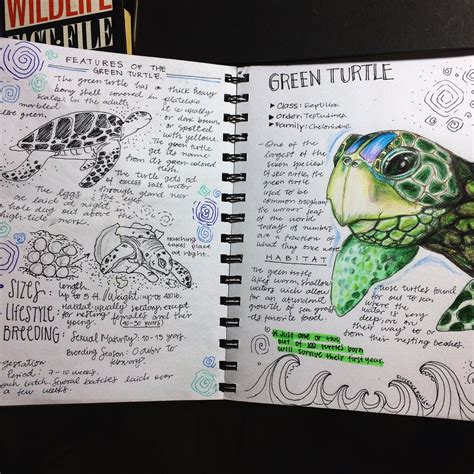 WILDLIFE
FACT-FILE
FEATURES OF THE
GREEN TURTLE.
The green turtle has a thick heavy
bony shell covered in platelike
scales. In the adult,
it is usually
marbled
or dark brown,
or spotted
with yellow.
The green
turtle gets
its name
from
its green-colored
flesh.
The turtle gets rid
of excess salt water
through gland near
the eyes
The eggs
are laid at night
above the
high-tide
hatching
takes place
at night.
SIZES
Length:
up to 5 ft. / Weight: up to 400 lb.
LIFESTYLE:
usually solitary except
for nesting females and their
young.
BREEDING:
Sexual Maturity: 10-15 years
Breeding Season: October to
February.
Gestation
Period: 7-10 weeks.
each batch. Several batches laid over
a few weeks.
GREEN TURTLE
Class: Reptilia
Order: Testudines
Family: Cheloniidae
-One of the
largest of the
seven species
of sea turtle, the
green turtle
used to be
common throughout
the warmer seas
of the world.
Today its numbers
are a fraction of
what they once were
HABITAT
The green turtle
likes warm, shallow
water which allows
for an abundant
growth of sea grass
its favorite food.
those turtles found
far out to sea
where the
water is very
deep, are on
their way to or
from their nesting beaches.
* Just one or two
out of 100 turtles born
will survive their first year.